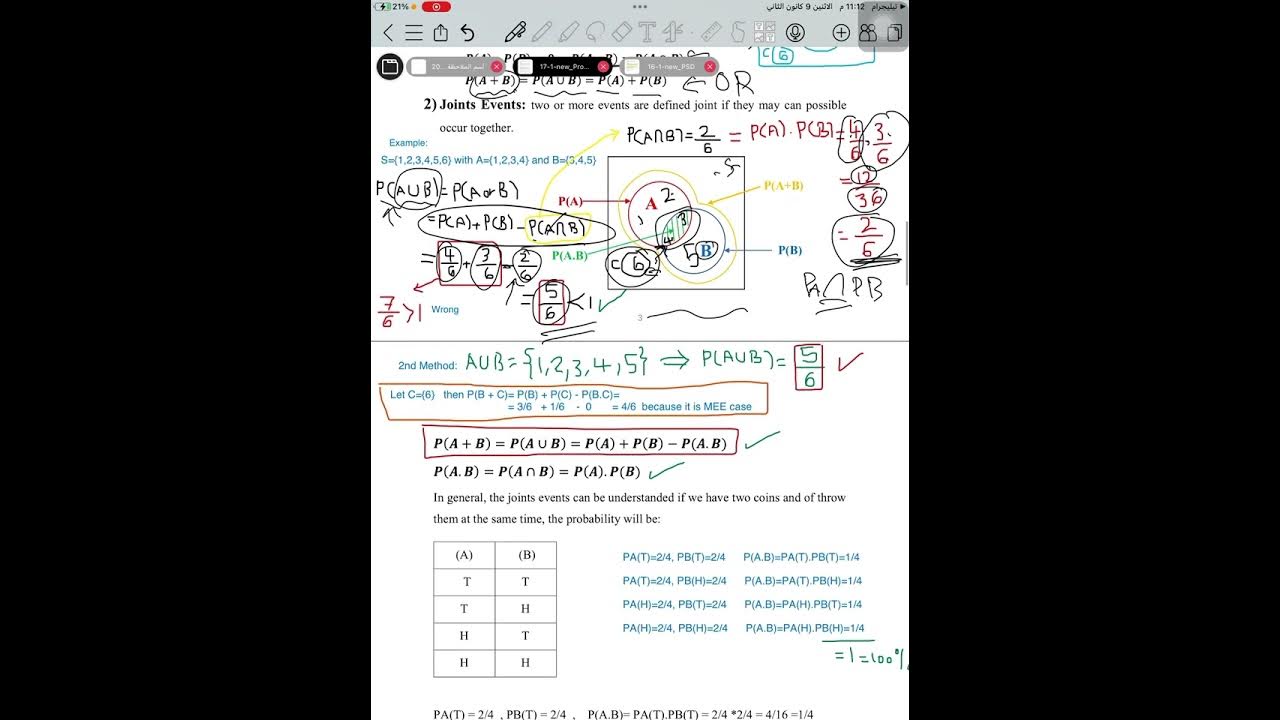 21% تيليجرام 11:12 م الاثنين 9 كانون الثاني
17-1-new_Pro...
16-1-new_PSD
P(A + B) = P(A∪B) = P(A) + P(B) ← OR
2) Joints Events: two or more events are defined joint if they may can possible
occur together.
Example:
S={1,2,3,4,5,6} with A={1,2,3,4} and B={3,4,5}
P(A∩B)=2/6 = P(A).P(B)=4/6.3/6
=12/36
=2/6
PA∩PB
P(A∪B)=P(A or B)
=P(A)+P(B)-P(A∩B)
=4/6+3/6-2/6
=5/6<1 ✓
7/6>1 Wrong
P(A)
A
2
3
4
5
B
P(A+B)
P(A.B)
P(B)
C 6
S
3
2nd Method: A∪B={1,2,3,4,5} ⇒ P(A∪B)=5/6 ✓
Let C={6} then P(B + C)= P(B) + P(C) - P(B.C)=
= 3/6 + 1/6 - 0 = 4/6 because it is MEE case
P(A + B) = P(A ∪ B) = P(A) + P(B) − P(A.B) ✓
P(A.B) = P(A ∩ B) = P(A).P(B) ✓
In general, the joints events can be understood if we have two coins and of throw
them at the same time, the probability will be:
(A) (B)
T T
T H
H T
H H
PA(T)=2/4, PB(T)=2/4 P(A.B)=PA(T).PB(T)=1/4
PA(T)=2/4, PB(H)=2/4 P(A.B)=PA(T).PB(H)=1/4
PA(H)=2/4, PB(T)=2/4 P(A.B)=PA(H).PB(T)=1/4
PA(H)=2/4, PB(H)=2/4 P(A.B)=PA(H).PB(H)=1/4
=1=100%
PA(T) = 2/4 , PB(T) = 2/4 , P(A.B)= PA(T).PB(T) = 2/4 *2/4 = 4/16 =1/4